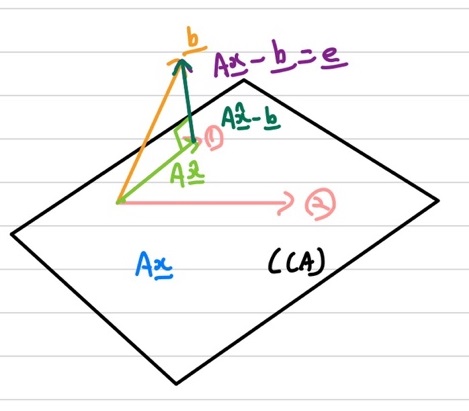 b
Ax - b = e
Ax̂ - b
①
Ax̂
②
Ax
C(A)